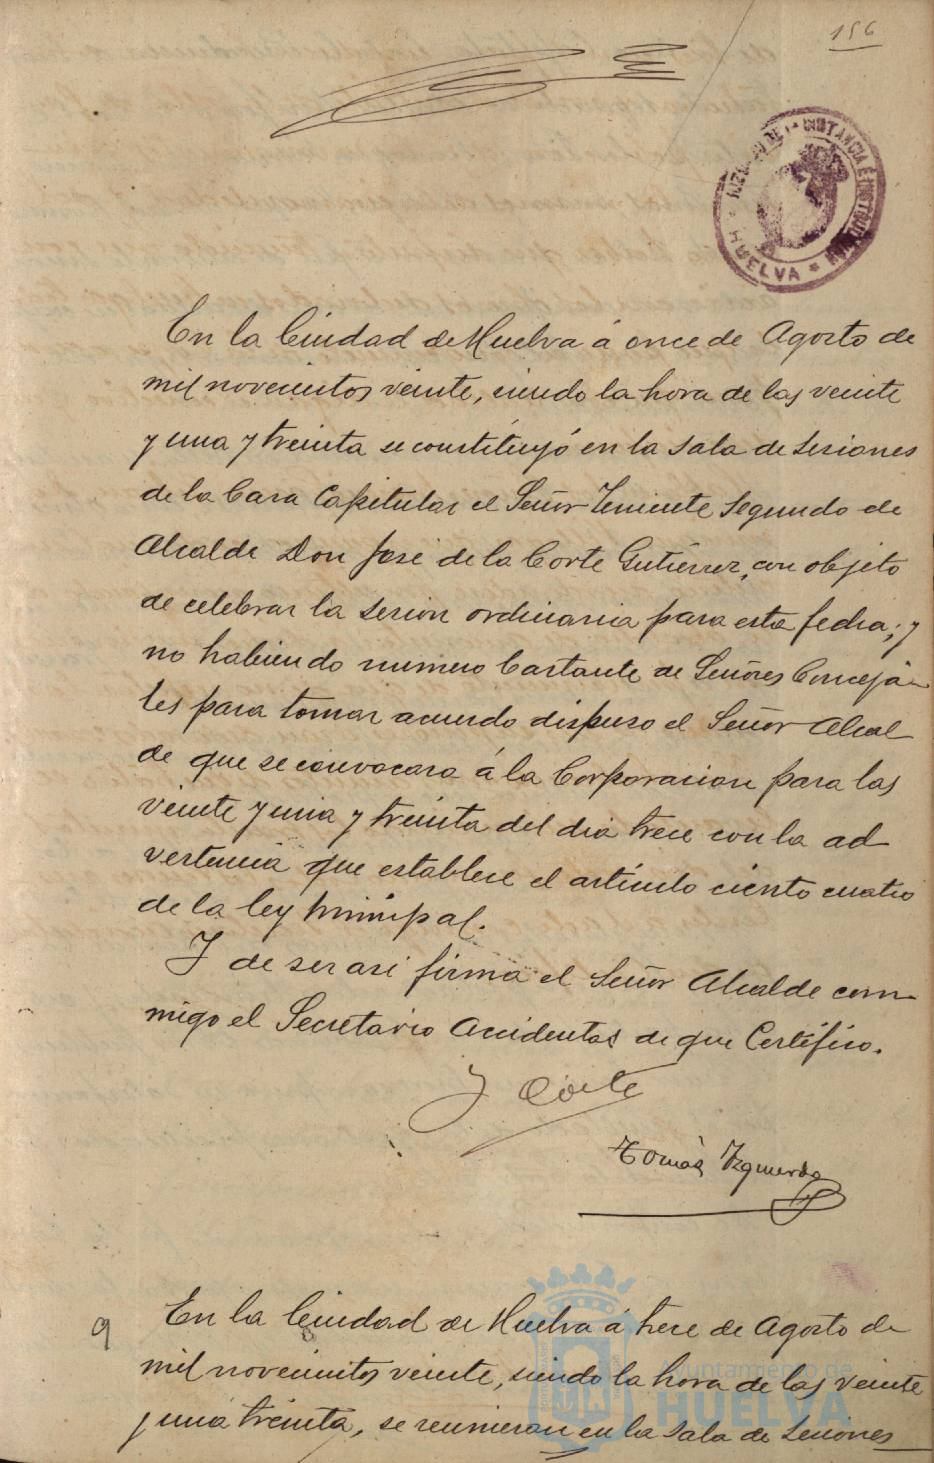 156
JUZGADO DE 1ª INSTANCIA É INSTRUCCION
* HUELVA *
En la Ciudad de Huelva á once de Agosto de
mil novecientos veinte, siendo la hora de las veinte
y una y treinta se constituyó en la Sala de Sesiones
de la Casa Capitular el Señor Teniente Segundo de
Alcalde Don José de la Corte Gutiérrez, con objeto
de celebrar la sesion ordinaria para esta fecha; y
no habiendo numero bastante de Señores Conceja-
les para tomar acuerdo dispuso el Señor Alcal
de que se convocara á la Corporacion para las
veinte y una y treinta del dia trece con la ad
vertencia que establece el artículo ciento cuatro
de la ley Municipal.
Y de ser asi firma el Señor Alcalde con-
migo el Secretario Accidental de que Certifico.
J Corte
Tomás Izquierdo
9
En la Ciudad de Huelva á trece de Agosto de
mil novecientos veinte, siendo la hora de las veinte
y una treinta, se reunieron en la Sala de Sesiones
Ayuntamiento de
HUELVA